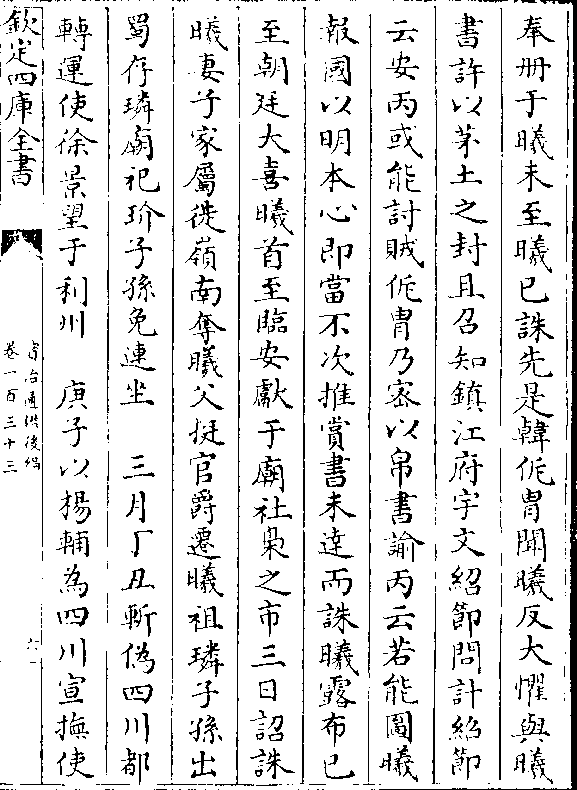 奉册于曦未至曦已誅先是韓侂胄聞曦反大懼與曦
書許以茅土之封且召知鎮江府宇文紹節問計紹節
云安丙或能討賊侂胄乃密以帛書諭丙云若能圖曦
報國以明本心即當不次推賞書未達而誅曦露布已
至朝廷大喜曦首至臨安獻于廟社梟之市三日詔誅
曦妻子家屬徙嶺南奪曦父挺官爵遷曦祖璘子孫出
蜀存璘廟祀玠子孫免連坐　三月丁丑斬偽四川都
轉運使徐景望于利州　庚子以楊輔為四川宣撫使
欽定四庫全書
資治通鑑後編
卷一百三十三